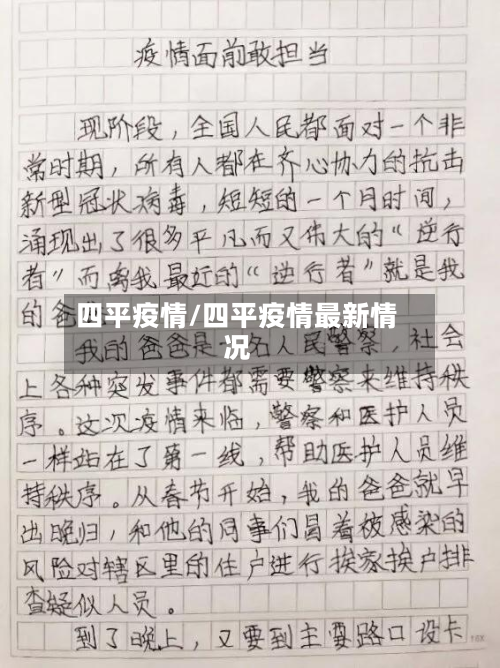 疫情面前敢担当
现阶段，全国人民都面对一个非
常时期，所有人都在齐心协力的抗击
新型冠状病毒，短短的一个月时间，
涌现出了很多平凡而又伟大的“逆行
者”而离我最近的“逆行者”就是我
的爸
四平疫情/四平疫情最新情
况
我的爸爸是一名人民警察，社会
上各种突发事件都需要警察来维持秩
序。这次疫情来临，警察和医护人员
一样站在了第一线，帮助医护人员维
持秩序。从春节开始，我的爸爸就早
出晚归，和他的同事们冒着被感染的
风险对辖区里的住户进行挨家挨户排
查疑似人员。
到了晚上，又要到主要路口设卡